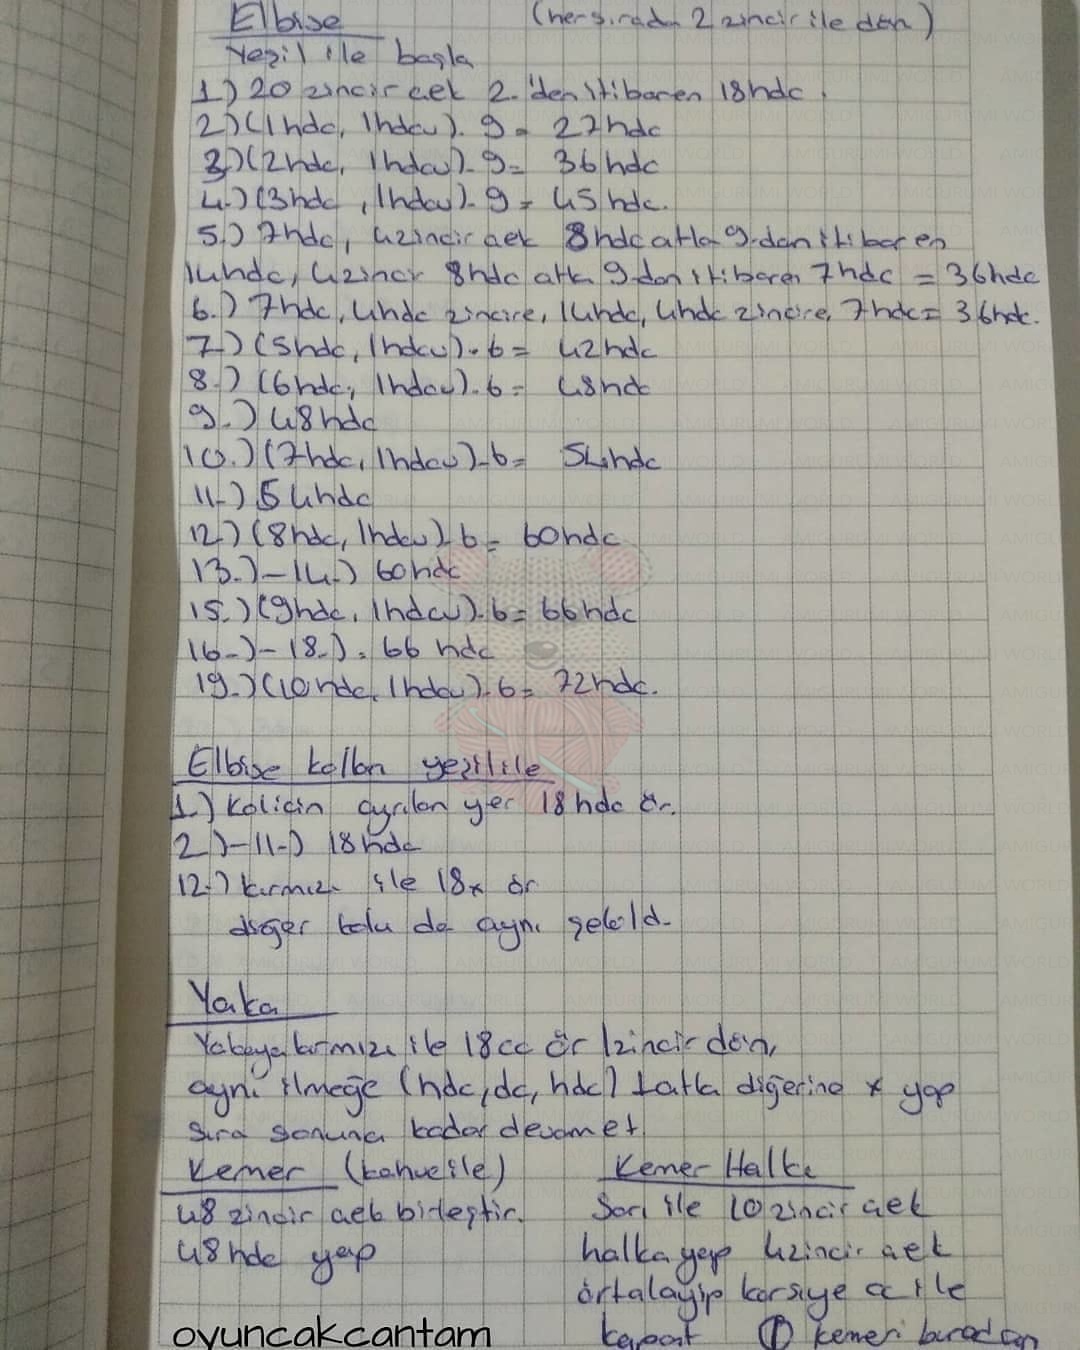 Elbise (her sırada 2 zincir ile dön)
Yeşil ile başla
1.) 20 zincir çek 2.'den itibaren 18hdc.
2.) (1hdc, 1hdcv). 9 = 27hdc
3.) (2hdc, 1hdcv). 9 = 36hdc
4.) (3hdc, 1hdcv). 9 = 45hdc.
5.) 7hdc, 4zincir çek 8hdc atla 9.dan itibaren
14hdc, 4zincir 8hdc atla 9.dan itibaren 7hdc = 36hdc
6.) 7hdc, 4hdc zincire, 14hdc, 4hdc zincire, 7hdc = 36hdc.
7.) (5hdc, 1hdcv). 6 = 42hdc
8.) (6hdc, 1hdcv). 6 = 48hdc
9.) 48hdc
10.) (7hdc, 1hdcv). 6 = 54hdc
11.) 54hdc
12.) (8hdc, 1hdcv). 6 = 60hdc
13.) - 14.) 60hdc
15.) (9hdc, 1hdcv). 6 = 66hdc
16.) - 18.). 66 hdc
19.) (10hdc, 1hdcv). 6 = 72hdc.
Elbise kolları yeşil ile
1.) Kol için ayrılan yer 18hdc ör.
2.) - 11.) 18hdc
12.) kırmızı ile 18x ör
diğer kolu da aynı şekild.
Yaka
Yakaya kırmızı ile 18cc ör 1zincir dön,
aynı ilmeğe (hdc, dc, hdc) 1 atla diğerine x yap
sıra sonuna kadar devam et.
Kemer (kahve ile) Kemer Halka
48 zincir çek birleştir. Sarı ile 10 zincir çek
48hdc yap halka yap 4zincir çek
örtalayıp karşıye cc ile
kapat kemeri buradan
oyuncakcantam